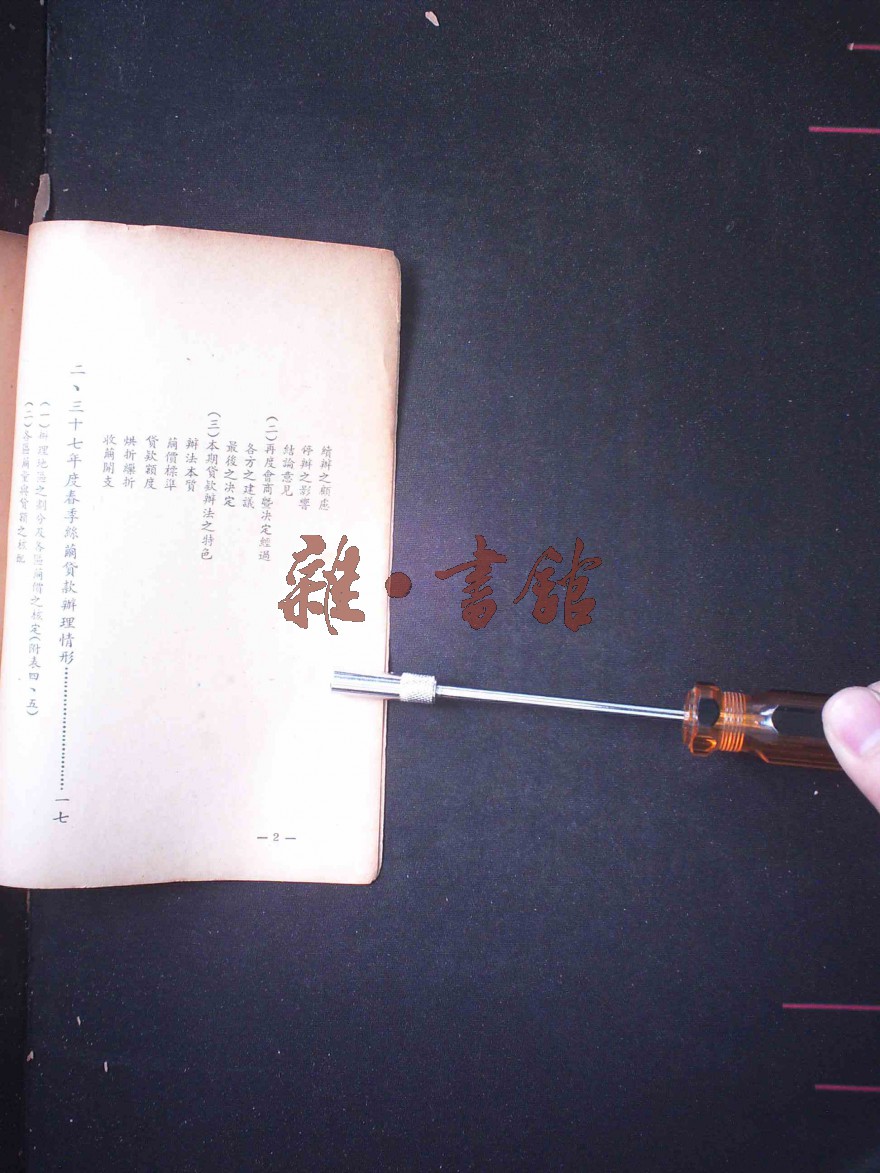 續辦之顧慮
停辦之影響
結論意見
(二)再度會商暨決定經過
各方之建議
最後之決定
(三)本期貸款辦法之特色
辦法本質
繭價標準
貸款額度
烘折繅折
收繭開支
二、三十七年度春季絲繭貸款辦理情形……………………一七
(一)辦理地區之劃分及各區繭價之核定(附表四、五)
(二)各區繭量與貸額之核配
—2—
雜·書館